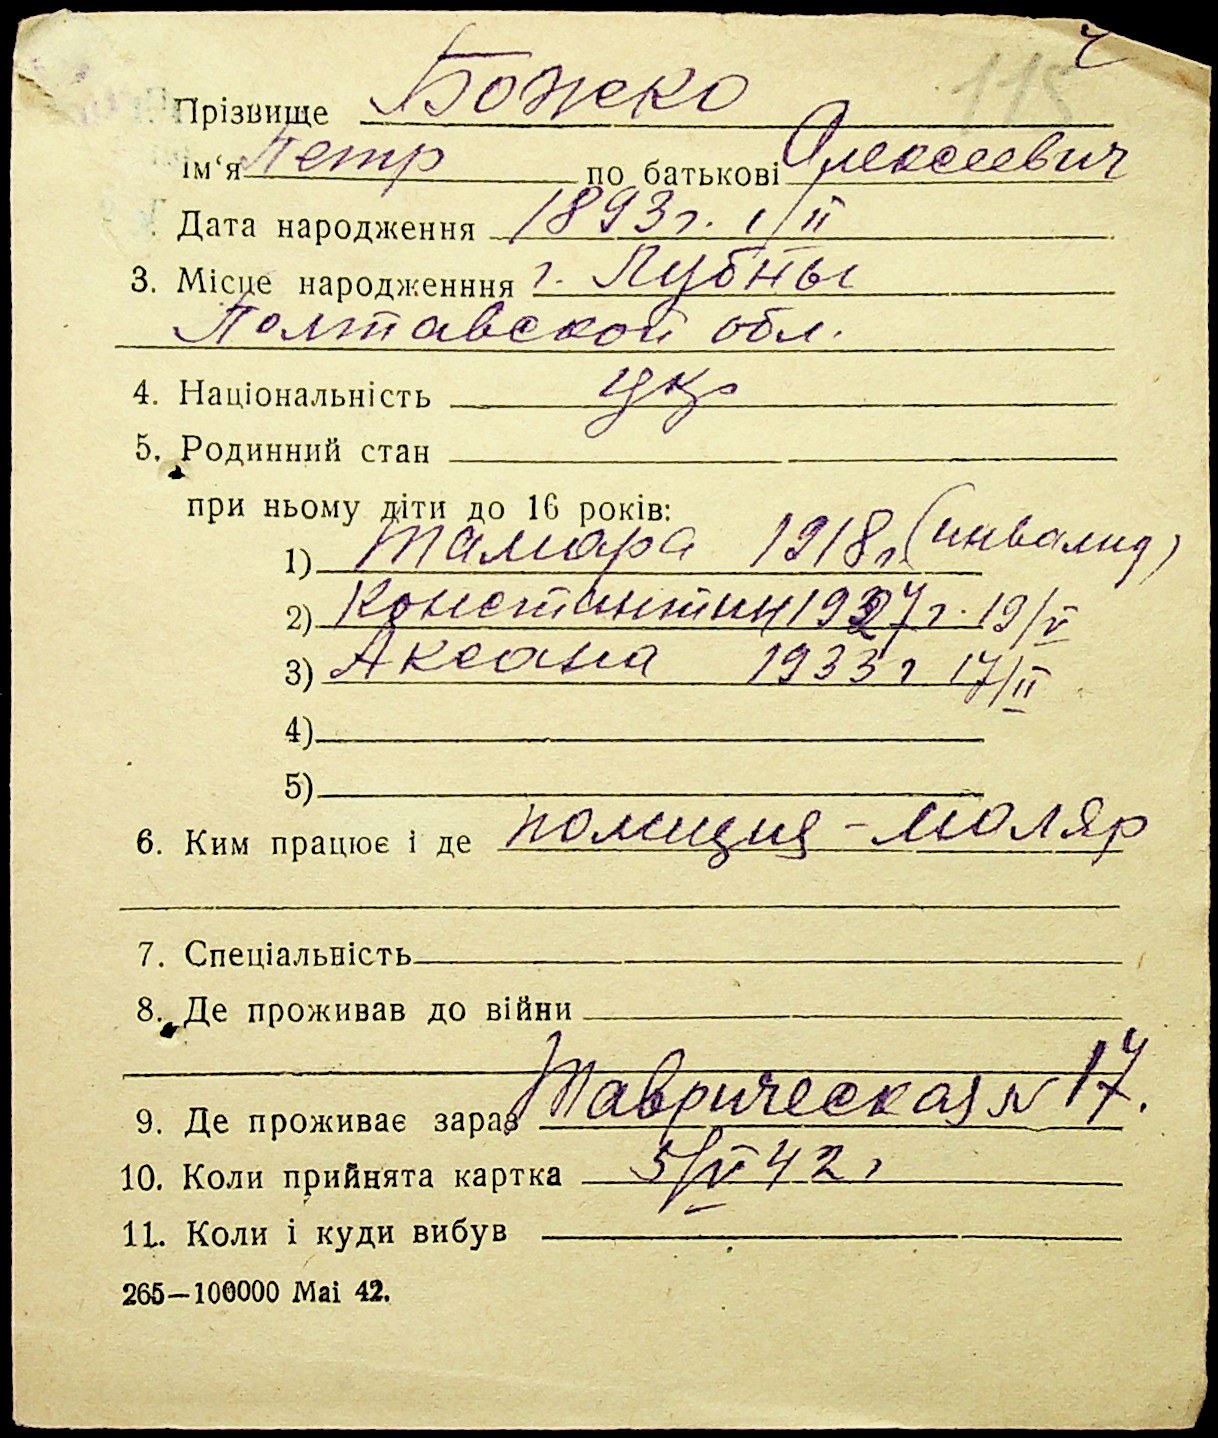 118
Прізвище Божко
ім‘я Петр по батькові Алексеевич
Дата народження 1893 г. 1/II
3. Місце народженння г. Лубны
Полтавской обл.
4. Національність укр
5. Родинний стан
при ньому діти до 16 років:
1) Тамара 1918 г. (инвалид)
2) Константин 1927 г. 19/V
3) Аксана 1933 г 17/II
4)
5)
6. Ким працює і де полиция - маляр
7. Спеціальність
8. Де проживав до війни
9. Де проживає зараз Таврическая № 17.
10. Коли прийнята картка 5/V 42 г
11. Коли і куди вибув
265—100000 Mai 42.